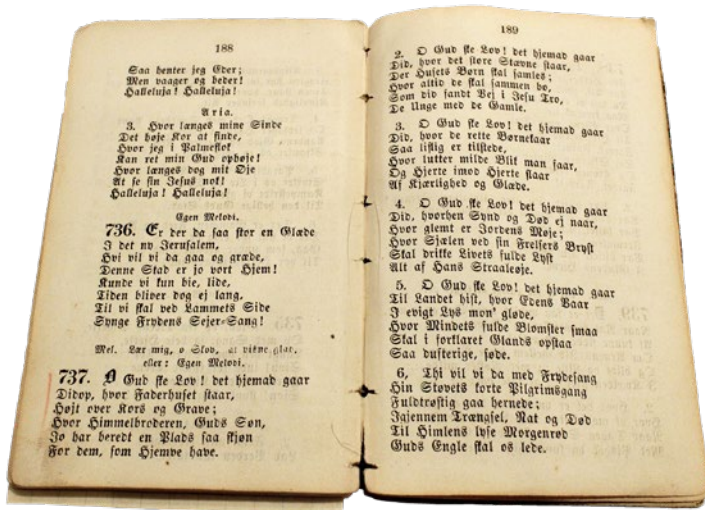 188
Saa henter jeg Eder;
Men vaager og beder!
Halleluja! Halleluja!
Aria.
3. Hvor længes mine Sinde
Det høje Kor at finde,
Hvor jeg i Palmeflok
Kan ret min Gud ophøje!
Hvor længes dog mit Øje
At se sin Jesus nok!
Halleluja! Halleluja!
Egen Melodi.
736. Er der da saa stor en Glæde
I det ny Jerusalem,
Hvi vil vi da gaa og græde,
Denne Stad er jo vort Hjem!
Kunde vi kun bie, lide,
Tiden bliver dog ej lang,
Til vi skal ved Lammets Side
Synge Frydens Sejer-Sang!
Mel. Lær mig, o Skov, at visne glad,
eller: Egen Melodi.
737. O Gud ske Lov! det hjemad gaar
Didop, hvor Faderhuset staar,
Højt over Kors og Grave;
Hvor Himmelbroderen, Guds Søn,
Jo har beredt en Plads saa skjøn
For dem, som Hjemve have.
189
2. O Gud ske Lov! det hjemad gaar
Did, hvor det store Stævne staar,
Der Husets Børn skal samles;
Hvor altid de skal sammen bo,
Som did fandt Vej i Jesu Tro,
De Unge med de Gamle.
3. O Gud ske Lov! det hjemad gaar
Did, hvor de rette Børnekaar
Saa liflig er tilstede,
Hvor lutter milde Blik man faar,
Og Hjerte imod Hjerte slaar
Af Kjærlighed og Glæde.
4. O Gud ske Lov! det hjemad gaar
Did, hvorhen Synd og Død ej naar,
Hvor glemt er Jordens Møje;
Hvor Sjælen ved sin Frelsers Bryst
Skal drikke Livets fulde Lyst
Alt af Hans Straaleøje.
5. O Gud ske Lov! det hjemad gaar
Til Landet hist, hvor Edens Vaar
I evigt Lys mon' gløde,
Hvor Mindets fulde Blomster smaa
Skal i forklaret Glands opstaa
Saa dufterige, søde.
6, Thi vil vi da med Frydesang
Hin Støvets korte Pilgrimsgang
Fuldtrøstig gaa hernede;
Igjennem Trængsel, Nat og Død
Til Himlens lyse Morgenrød
Guds Engle skal os lede.